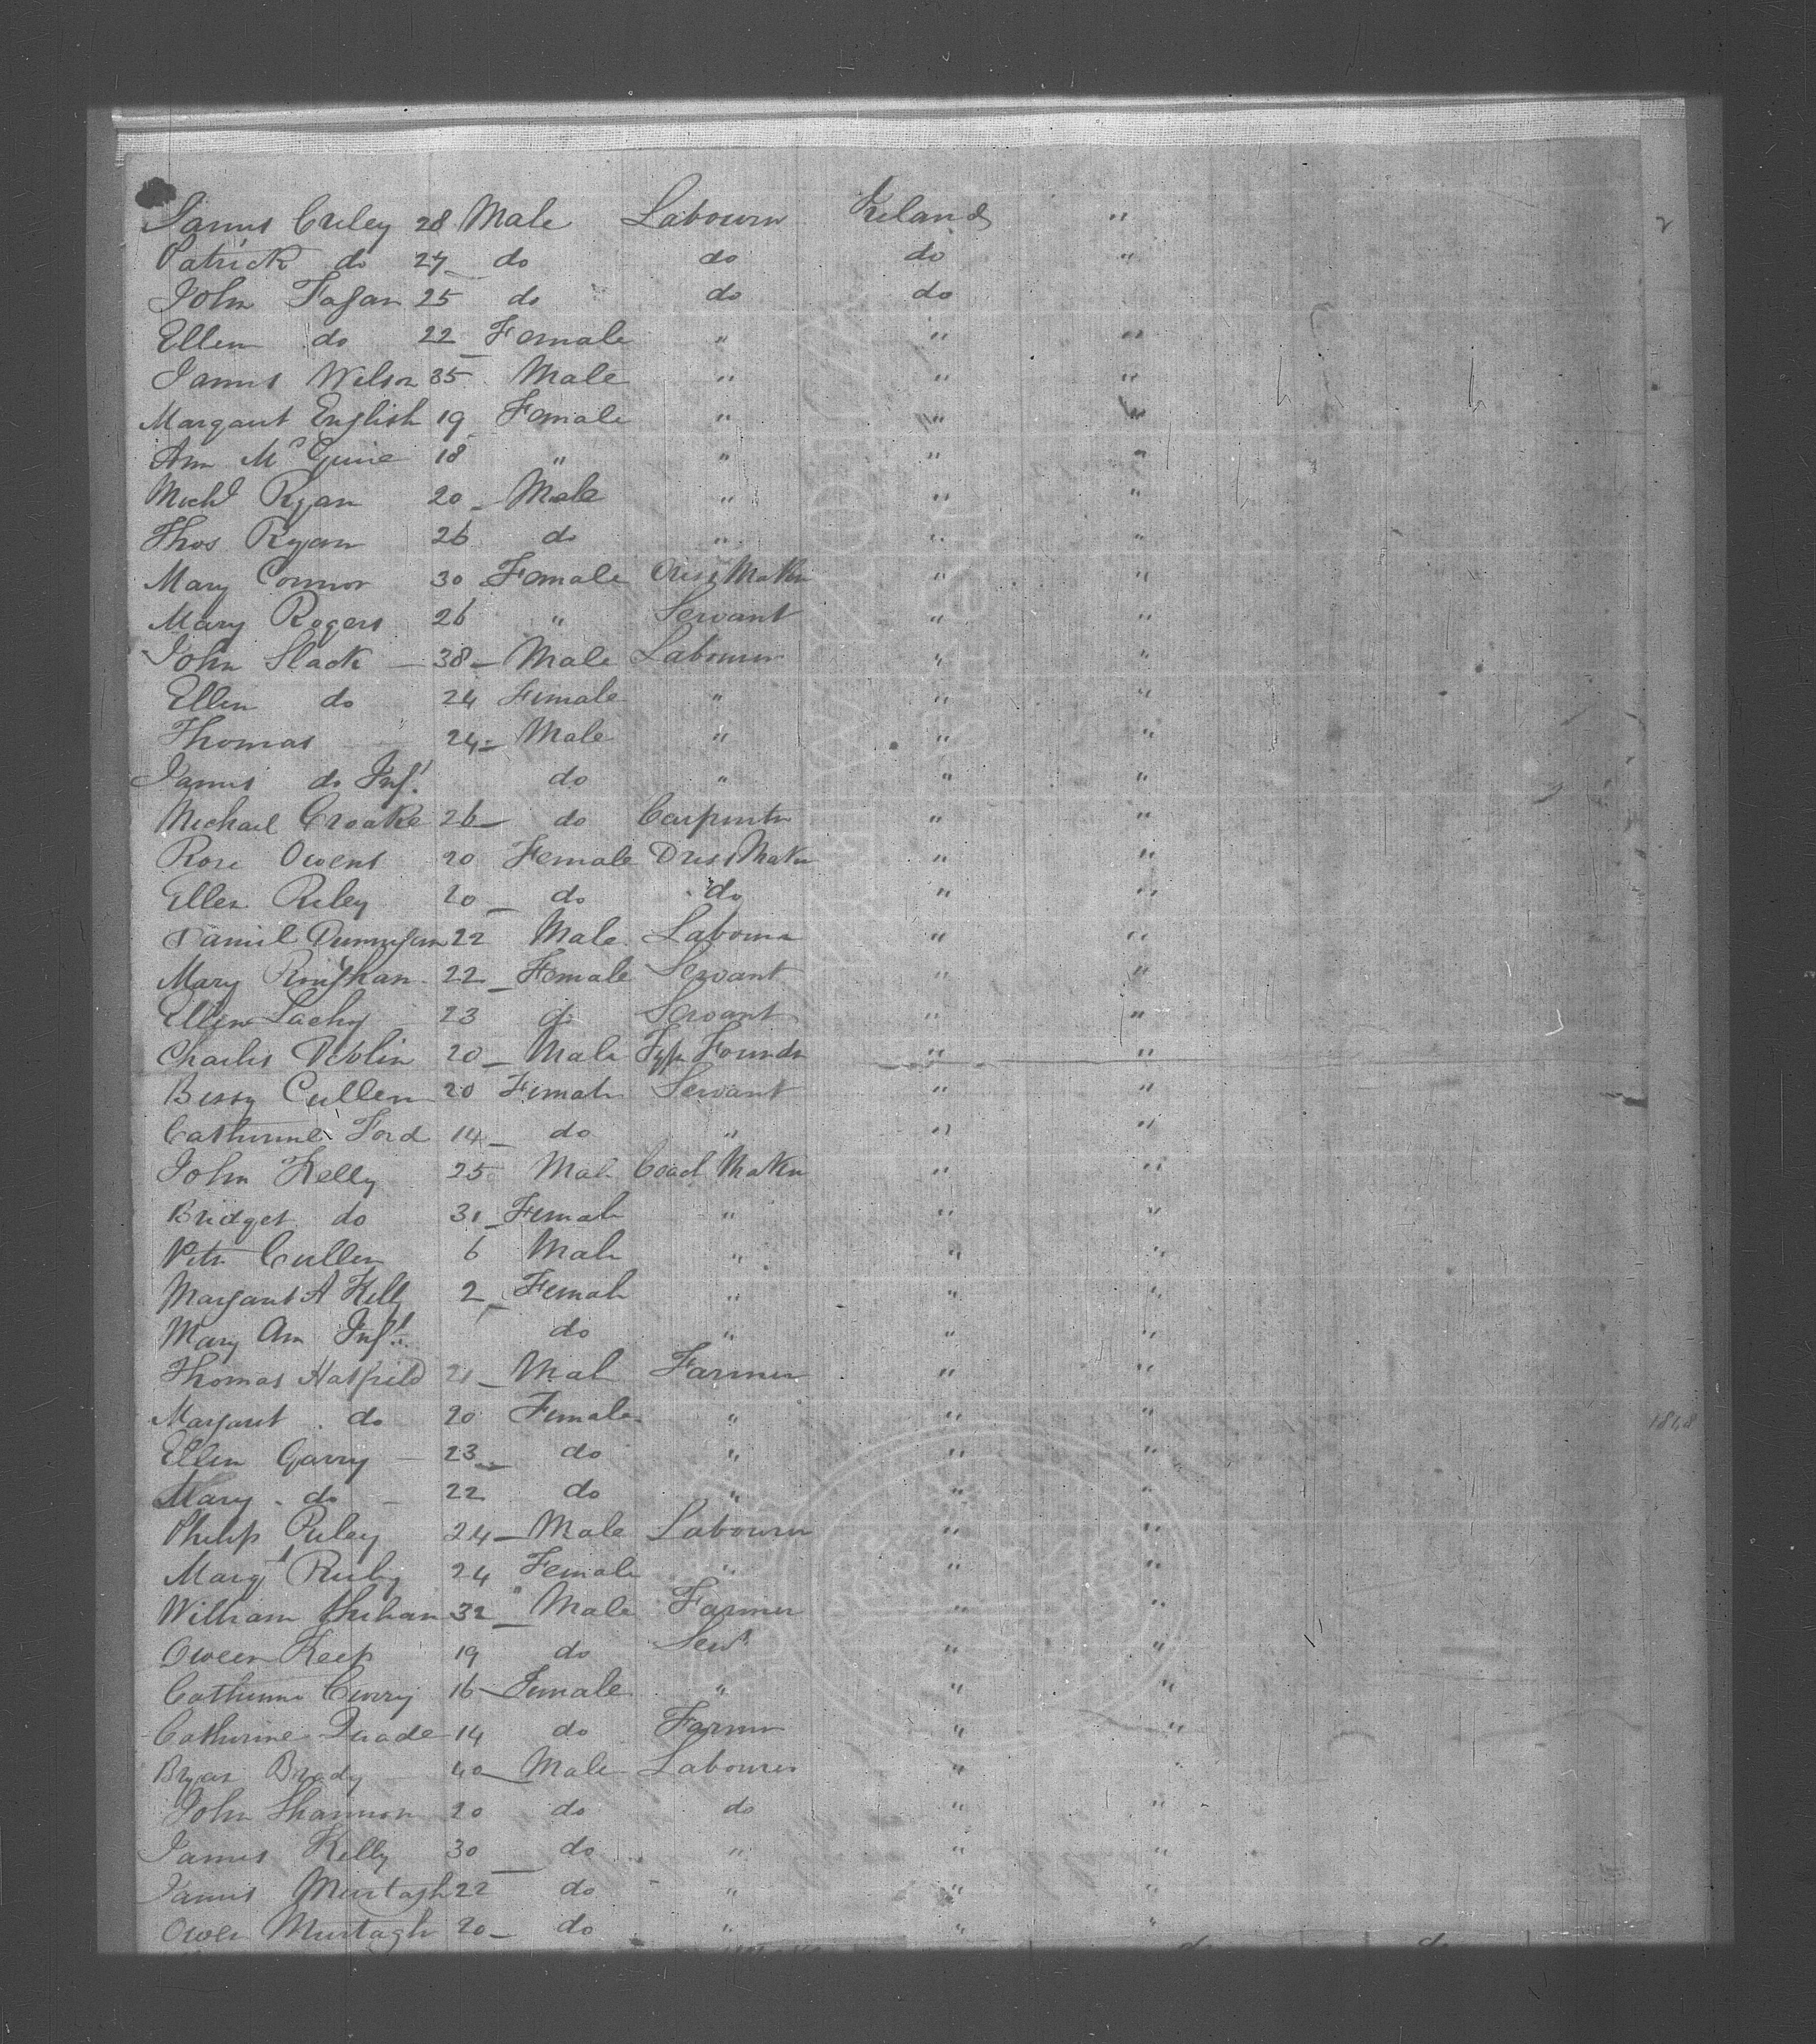 James Criley 28 Male Labourer Ireland "
Patrick do 27 do do do "
John Fagan 25 do do do
Ellen do 22 Female " " "
James Wilson 35 Male " " "
Margaret English 19 Female " " "
Ann McGuire 18 " " " "
Michl Ryan 20 Male " " "
Thos Ryan 26 do " " "
Mary Connor 30 Female Dress Maker " "
Mary Rogers 26 " Servant " "
John Slack 38 Male Labourer " "
Ellen do 24 Female " " "
Thomas 24 Male " " "
James do Inft do " " "
Michael Croake 26 do Carpenter " "
Rose Owens 20 Female Dress Maker " "
Ellen Riley 20 do do " "
Daniel Dunnigan 22 Male Labourer " "
Mary 22 Female Servant " "
Ellen Lachy 23 do Servant " "
Charles Devlin 20 Male Type Founder " "
Bessy Cullen 20 Female Servant " "
Catherine Ford 14 do " " "
John Kelly 25 Male Coach Maker " "
Bridget do 31 Female " " "
Peter Cullen 6 Male " " "
Margaret A Kelly 2 Female " " "
Mary Ann Inft do " " "
Thomas Hatfield 21 Male Farmer " "
Margaret do 20 Female " " "
Ellen Garry 23 do " " "
Mary do 22 do " " "
Philip Riley 24 Male Labourer " "
Margt Reily 24 Female " " "
William Shehan 32 Male Farmer " "
Owen Keep 19 do Servt " "
Catherine Curry 16 Female " " "
Catherine Quade 14 do Farmer " "
Bryan Brady 40 Male Labourer " "
John Shannon 20 do do " "
James Kelly 30 do " " "
James Murtagh 22 do " " "
Owen Murtagh 20 do " " "